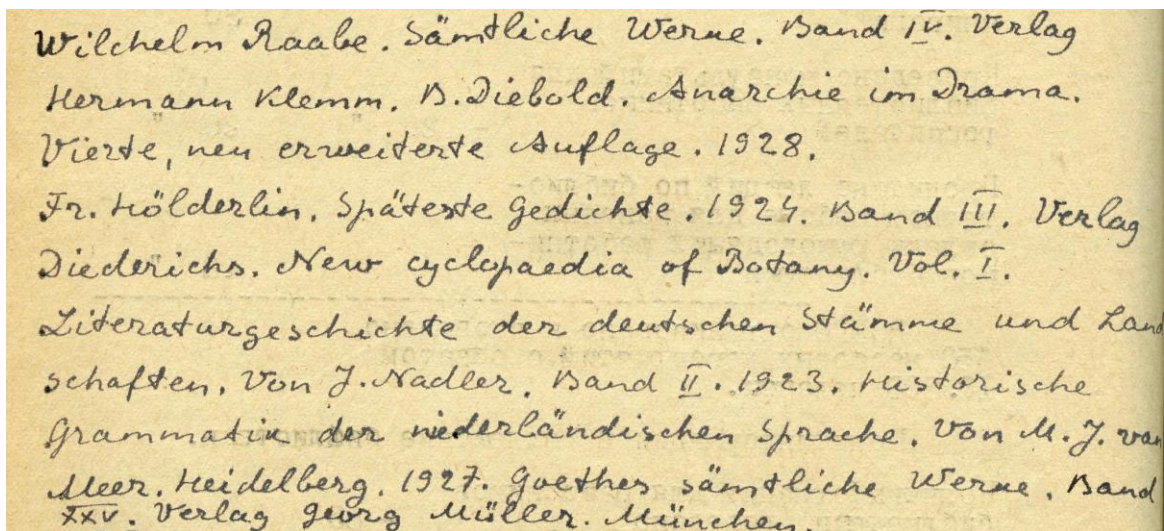 Wilchelm Raabe. Sämtliche Werke. Band IV. Verlag
Hermann Klemm. B. Diebold. Anarchie im Drama.
Vierte, neu erweiterte Auflage. 1928.
Fr. Hölderlin. Späteste Gedichte. 1924. Band III. Verlag
Diederichs. New cyclopaedia of Botany. Vol. I.
Literaturgeschichte der deutschen Stämme und Land
schaften. Von J. Nadler. Band II. 1923. Historische
Grammatik der niederländischen Sprache. Von M. J. van
Meer. Heidelberg. 1927. Goethes sämtliche Werke. Band
XXV. Verlag Georg Müller. München.